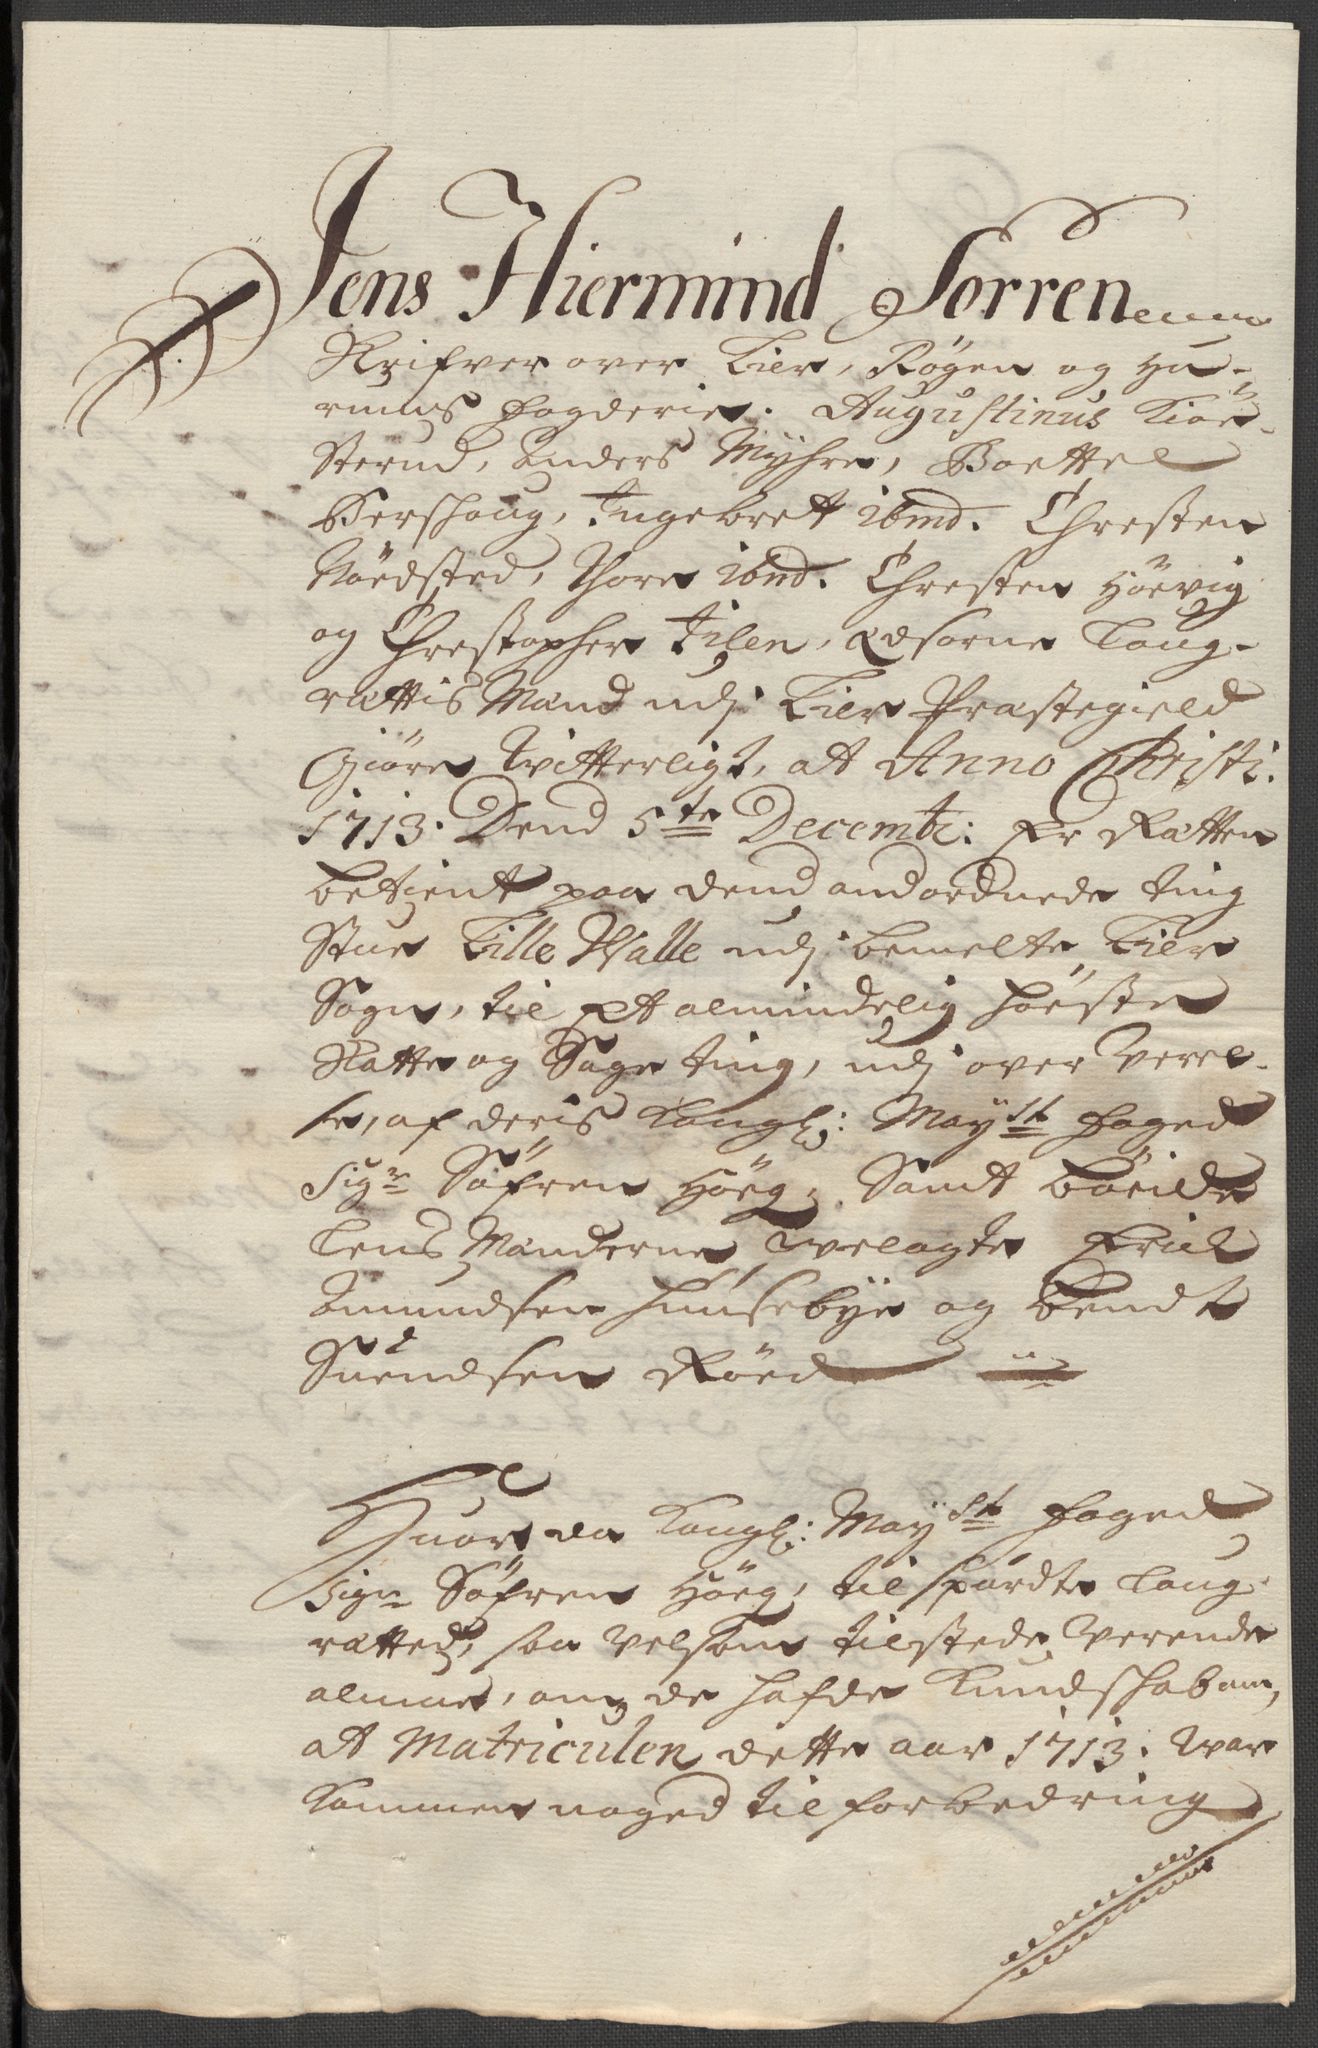 Jens Hiermind Sorren
Skrifver over Lier, Røgen og Hu-
rums fogderie. Augustinus Kiøs-
terud, Anders Myhre, Boettel
Bershoug, Ingebret ibmd. Chresten
Nördsted, Thore ibmd. Chresten Hörvig
og Chrestopher Tilen, Edsorne Laug-
rættis Mænd udj Lier Præstegield
Giöre Vitterligt, at Anno Christi.
1713. Dend 5te Decembr: Er Rætten
betient paa dend andordnede ting
Stue Lille Walle udj bemelte Lier
Sogn, til et almindelig höste
Skatte og Sage ting, udj over Værel-
se, af deris Kongl: Mayst foged
Sigr Söfren Hörg, Samt böide
Lens Mænderne, Velagte Erich
Amundsen Huusebÿe og Bendt
Suendsen Röed

Huor da Kongl: Mayst foged
Sigr Söfren Hörg, til spurdte Laug-
rætted, saa velsom tilstede Værende
almue, om de hafde Kundskab om,
at Matriculen dette aar 1713. Var
Kommen noged til forbedring